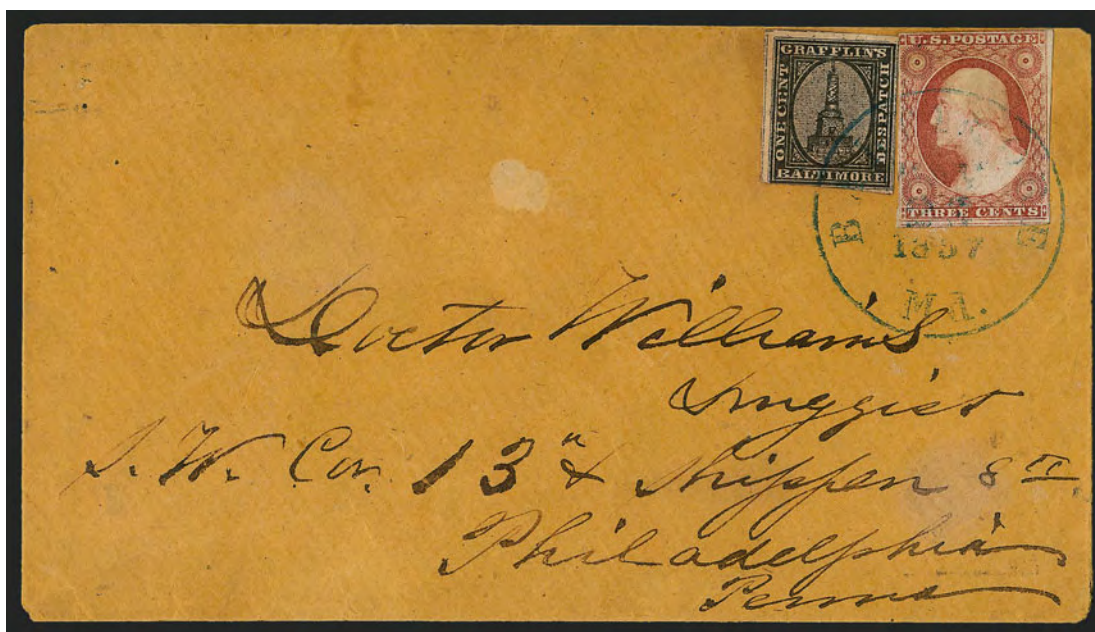 GRAFFLIN'S
ONE CENT
DESPATCH
BALTIMORE
U.S. POSTAGE
THREE CENTS
1857
Md.
Doctor Williams
Druggist
S. W. Cor. 13" & Shippen St.
Philadelphia
Penna